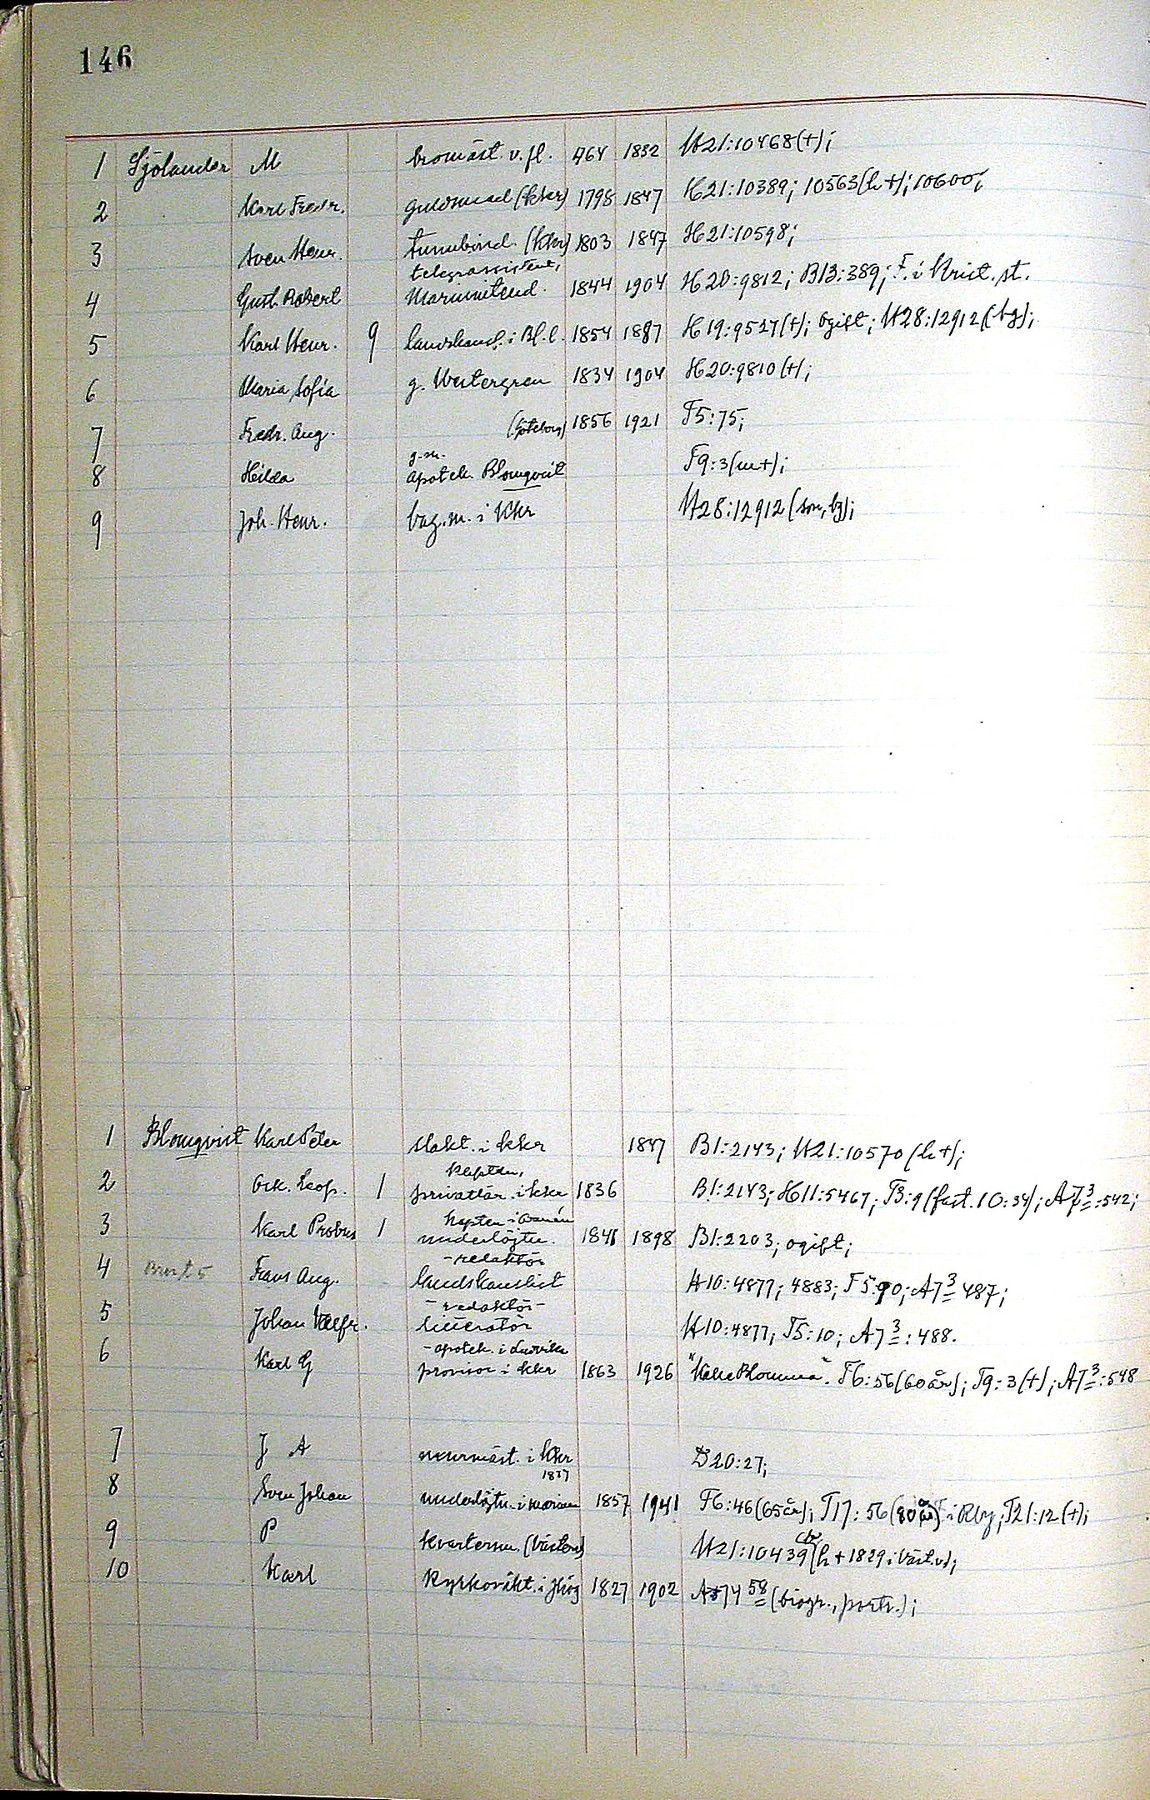 146
1 Sjölander M bromäst. v. fl. 1832 H21:10468(+);
2 Karl Fredr. guldsmed (Kkr) 1798 1847 H21:10389; 10563(h+); 10600;
3 Sven Henr. tunnbind. (Kkr) 1803 1847 H21:10598;
telegrassistent,
4 Gust. Robert Marinintend. 1844 1904 H20:9812; B13:389; F. i Krist. st.
5 Karl Henr. 9 landskansl. i Bl. l. 1854 1887 H19:9527(+); ogift; H28:12912(bg);
6 Maria Sofia g. Westergren 1834 1904 H20:9810(+);
7 Fredr. Aug. (Göteborg) 1856 1921 T5:75;
g.m.
8 Hilda apotek. Blomqvist T9:3(m+);
9 Joh. Henr. bag. m. i Kkr H28:12912(son, bg);
1 Blomqvist Karl Peter slakt. i Kkr 1847 B1:2143; H21:10570(h+);
kapten,
2 Osk. Leop. 1 privatlär. i Kkr 1836 B1:2143; H11:5467; T3:9(fast. 10:34); A7 3:542;
3 Karl Probus 1 underlöjtn. 1898 B1:2203; ogift;
-redaktör
4 Frans Aug. landskanslist H10:4877; 4883; T5:90; A7 3 487;
-redaktör-
5 Johan litteratör H10:4877; T5:10; A7 3:488.
-apotek. i Ludvika
6 Karl G provisor i Kkr 1863 1926 "Kalle Blomma". T6:56(60 år); T9:3(+); A7 3:548
7 J A murmäst. i Kkr D20:27;
1877
8 Sven Johan underlöjtn. i marinen 1857 1941 T6:46(65 år); T17:56(80 år) i Rby; T21:12(+);
9 P kvarterm. H21:10439(h+1829
10 Karl Kyrkovakt. 1827 1902 58 (biogr., portr.);